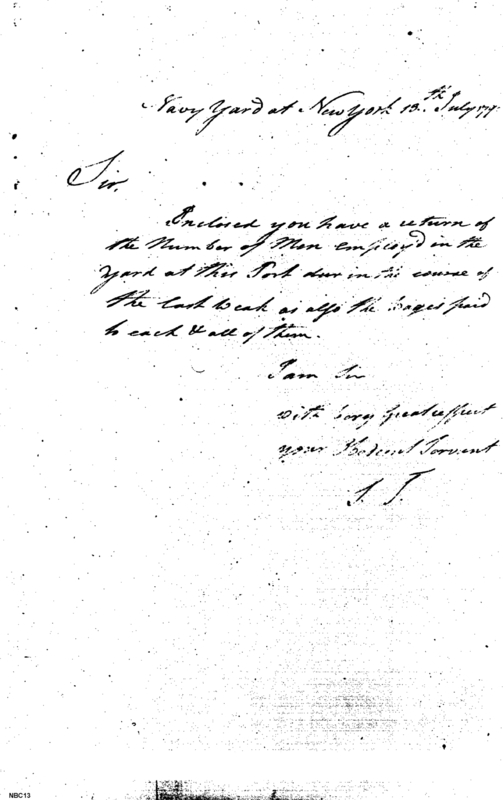 Navy Yard at New York 13th July 179
Sir,
Inclosed you have a return of
the Number of Men employ'd in the
Yard at this Port durin the course of
the last Weak as also the Wages paid
to each & all of them.
I am Sir
with very Great respect
your Servent
J. T.
NBC13